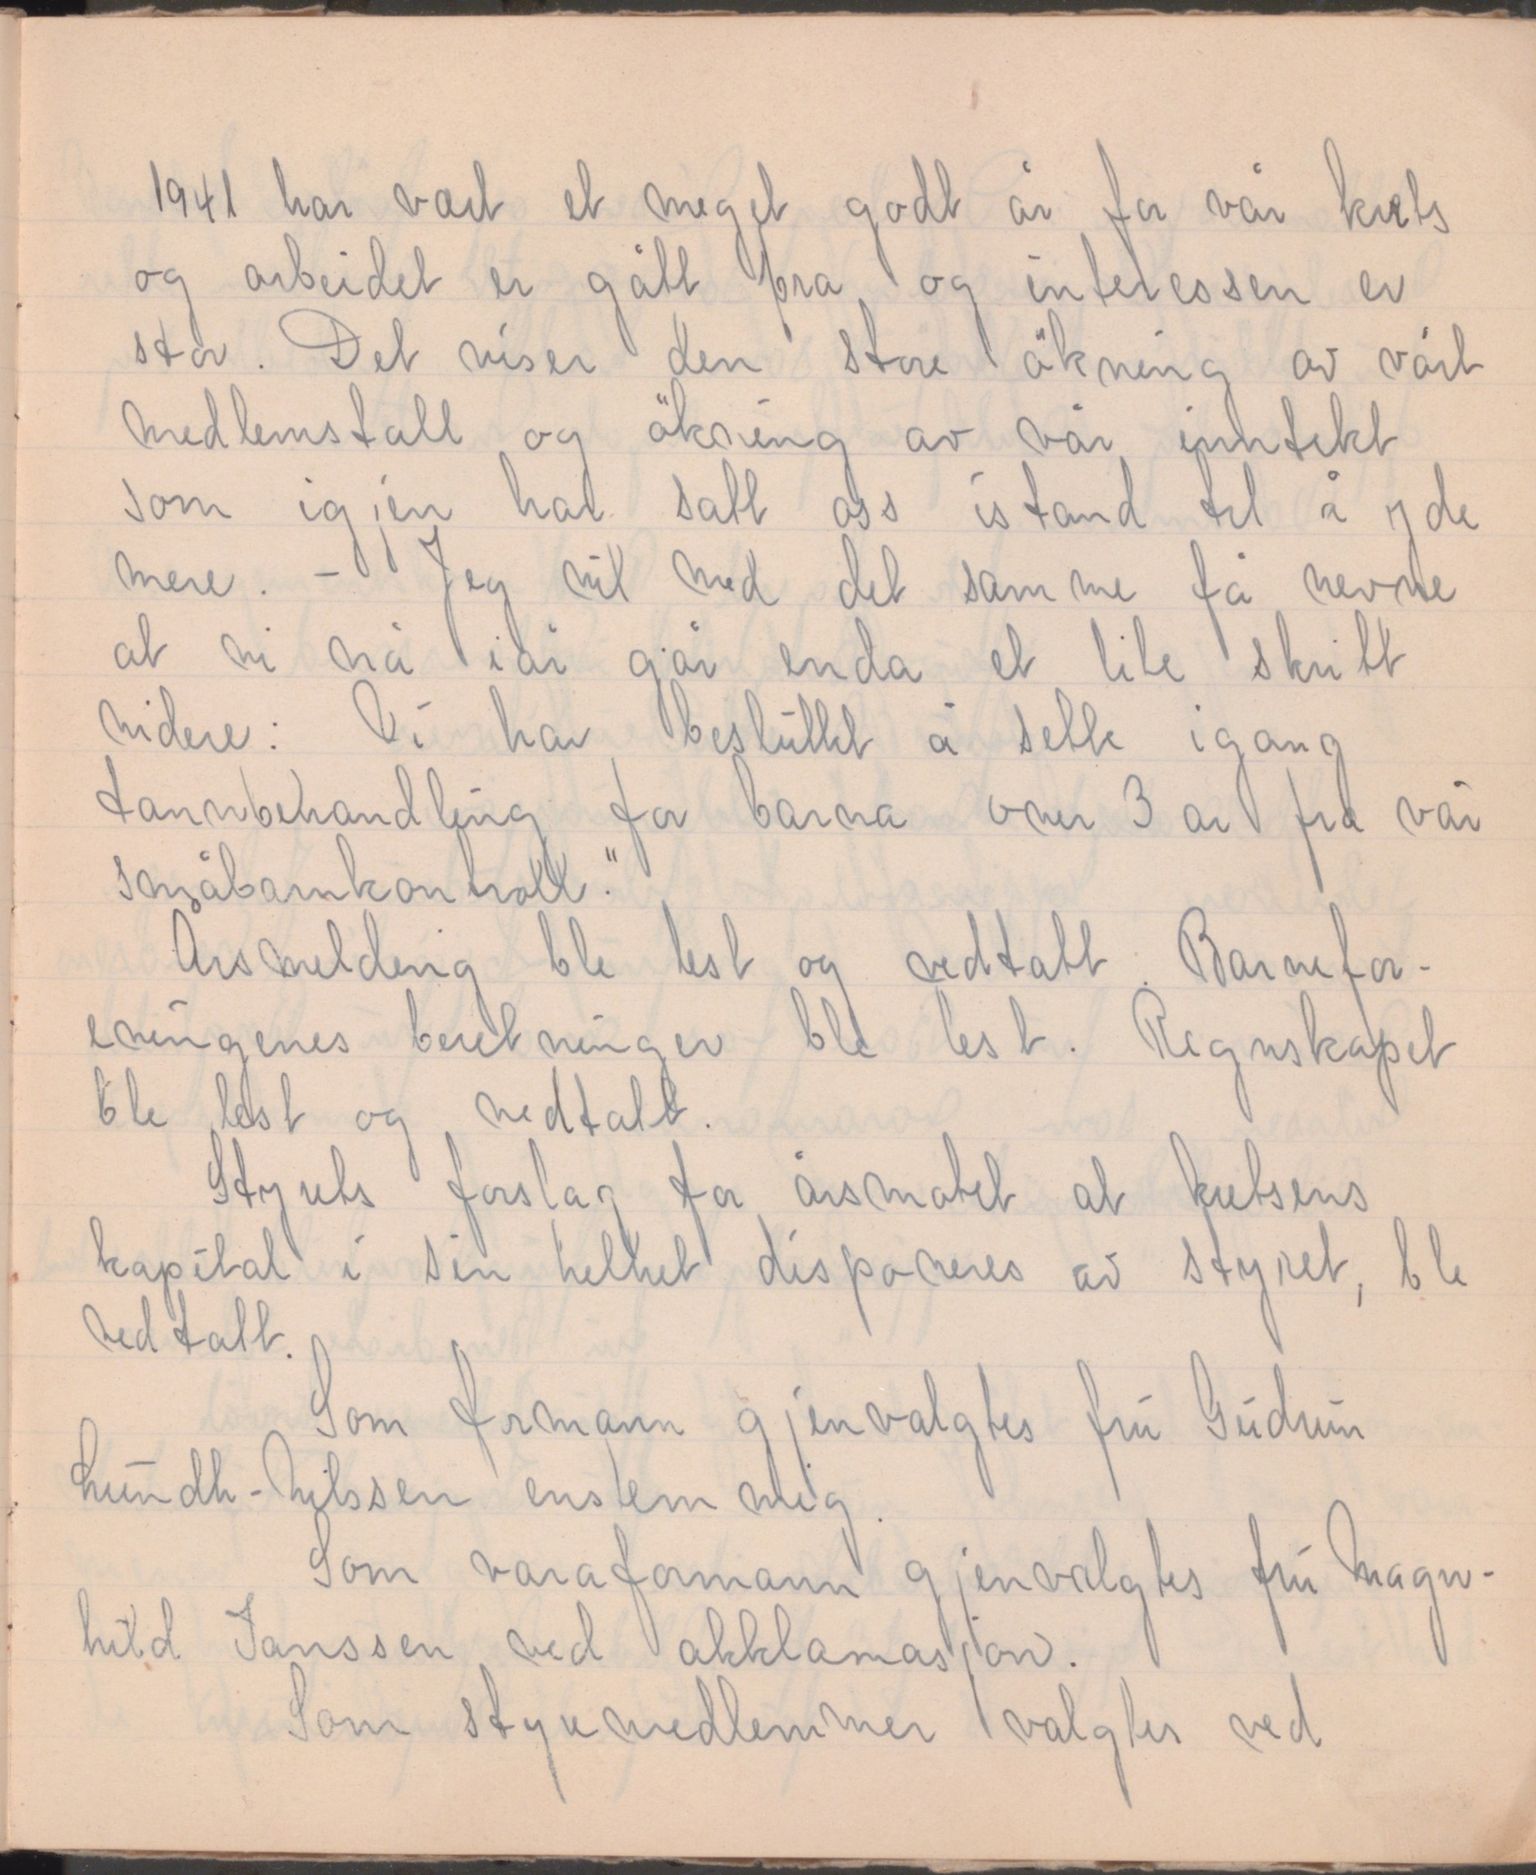 1941 har vært et meget godt år for vår krets
og arbeidet er gått bra og interessen er
stor. Det viser den store ökning av vårt
medlemstall og ökning av vår inntekt
som igjen har satt oss istand til å yde
mere. - Jeg vil med det samme få nevne
at vi nå iår går enda et lite skritt
videre: Vi har besluttet å sette igang
tannbehandling for barna over 3 år fra vår
småbarnkontroll."
Årsmelding ble lest og vedtatt. Barnefor-
eningenes beretninger ble lest. Regnskapet
ble lest og vedtatt.
Styrets forslag for årsmøtet at kretsens
kapital i sin helhet disponeres av styret, ble
vedtatt.
Som formann gjenvalgtes fru Gudrun
Lundh-Nilssen enstemmig.
Som varaformann gjenvalgtes fru Magn-
hild Janssen ved akklamasjon.
Som styremedlemmer valgtes ved